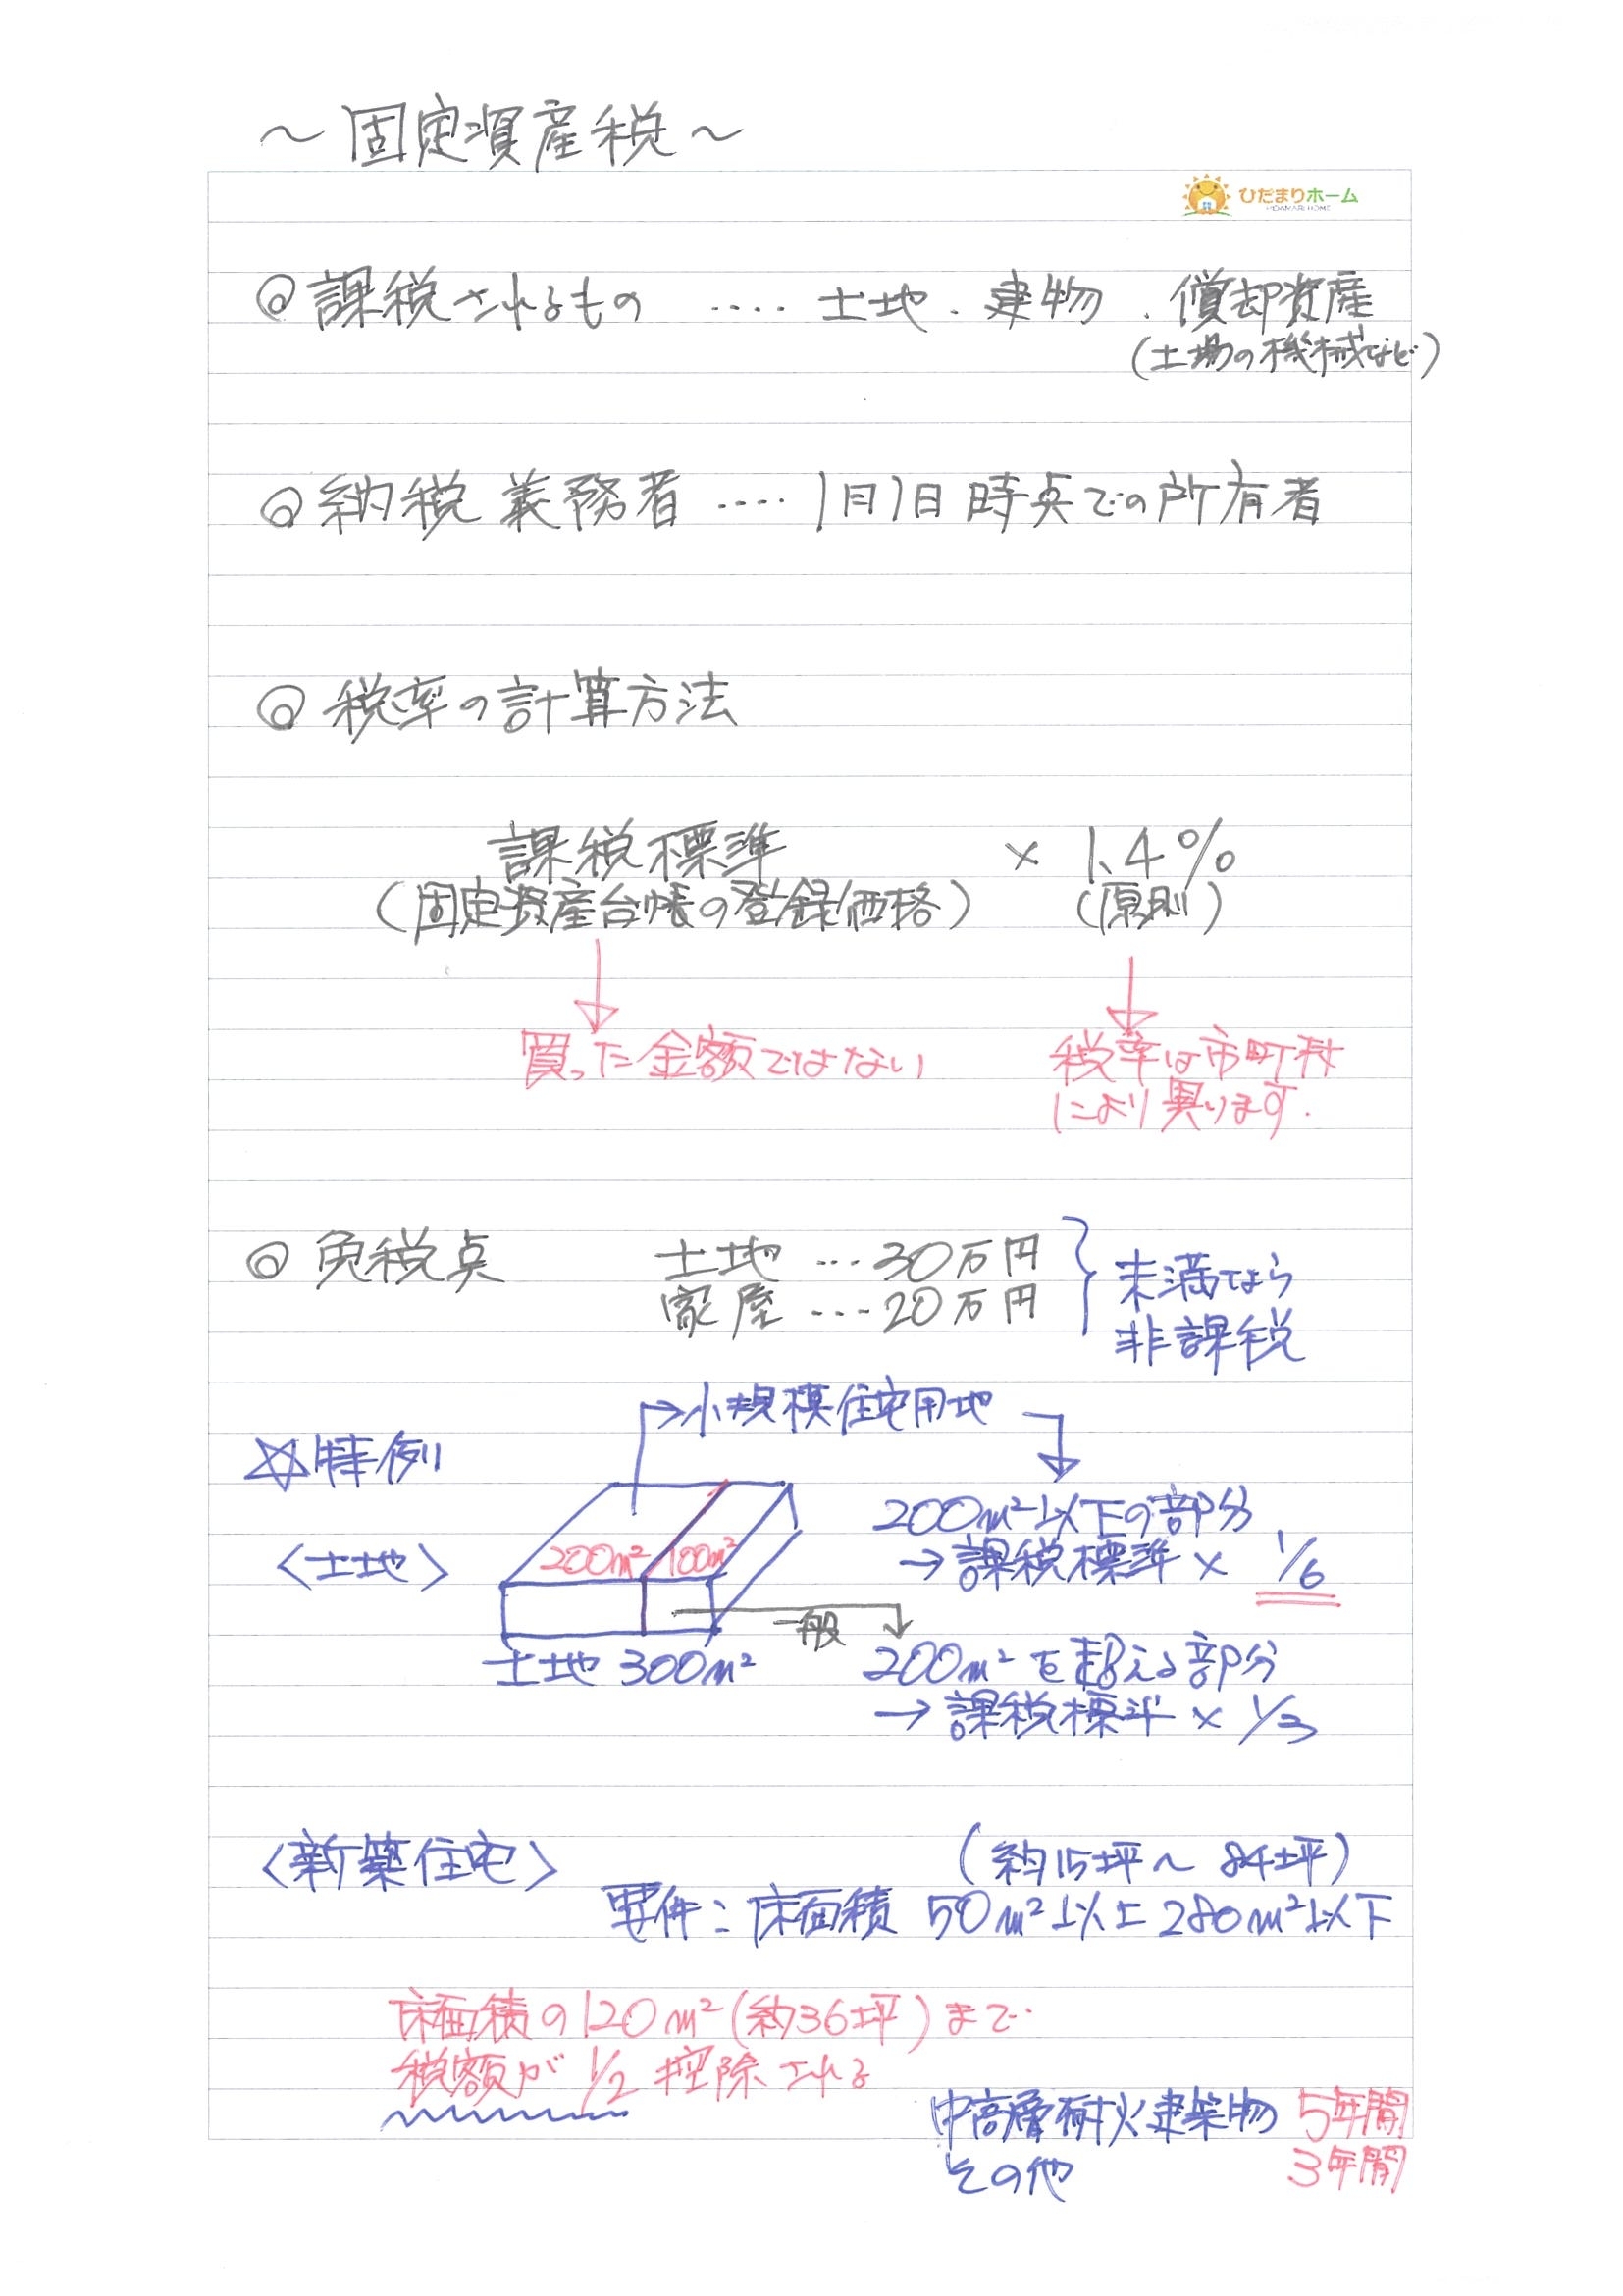 ～固定資産税～
ひだまりホーム
HIDAMARI HOME
◎課税されるもの ‥‥ 土地．建物．償却資産
(土場の機械など)
◎納税義務者 ‥‥ 1月1日時点での所有者
◎税率の計算方法
課税標準 × 1.4%
(固定資産台帳の登録価格) (原則)
買った金額ではない
税率は市町村
により異ります.
◎免税点 土地 … 30万円
家屋 … 20万円
未満なら
非課税
→小規模住宅用地
☆特例
200m²以下の部分
<土地> 200m² 100m² →課税標準 × 1/6
一般
土地 300m² 200m²を超える部分
→課税標準 × 1/3
<新築住宅> (約15坪～84坪)
要件：床面積 50m²以上280m²以下
床面積の120m²(約36坪)まで
税額が1/2控除される
中高層耐火建築物 5年間
その他 3年間